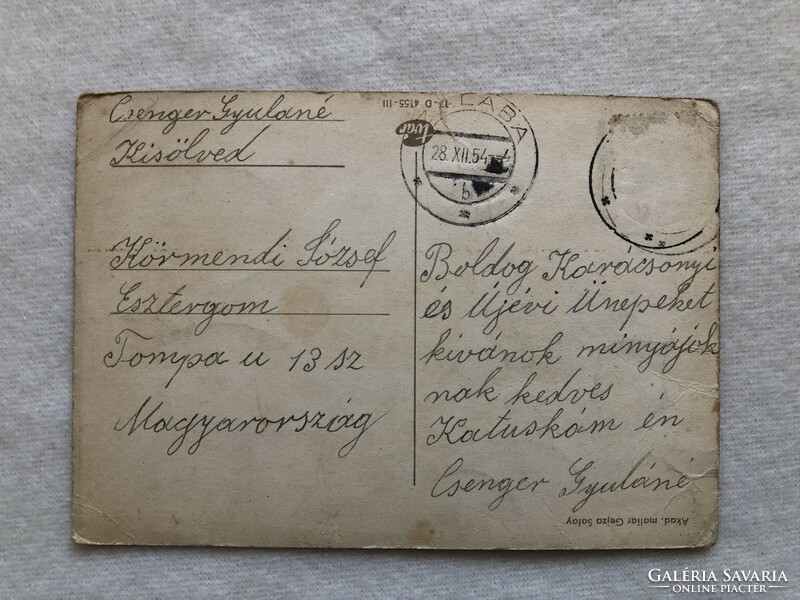 Csenger Gyuláné
Kisölved
17-D 4155-III
tvar
LABA
28.XII.54-4
b
Körmendi József
Esztergom
Tompa u 13 sz
Magyarország
Boldog Karácsonyi
és Újévi Ünepeket
kivánok minyájok
nak kedves
Katuskám én
Csenger Gyuláné
Akad. maliar Gejza Salay
GALÉRIA SAVARIA
ONLINE PIACTÉR